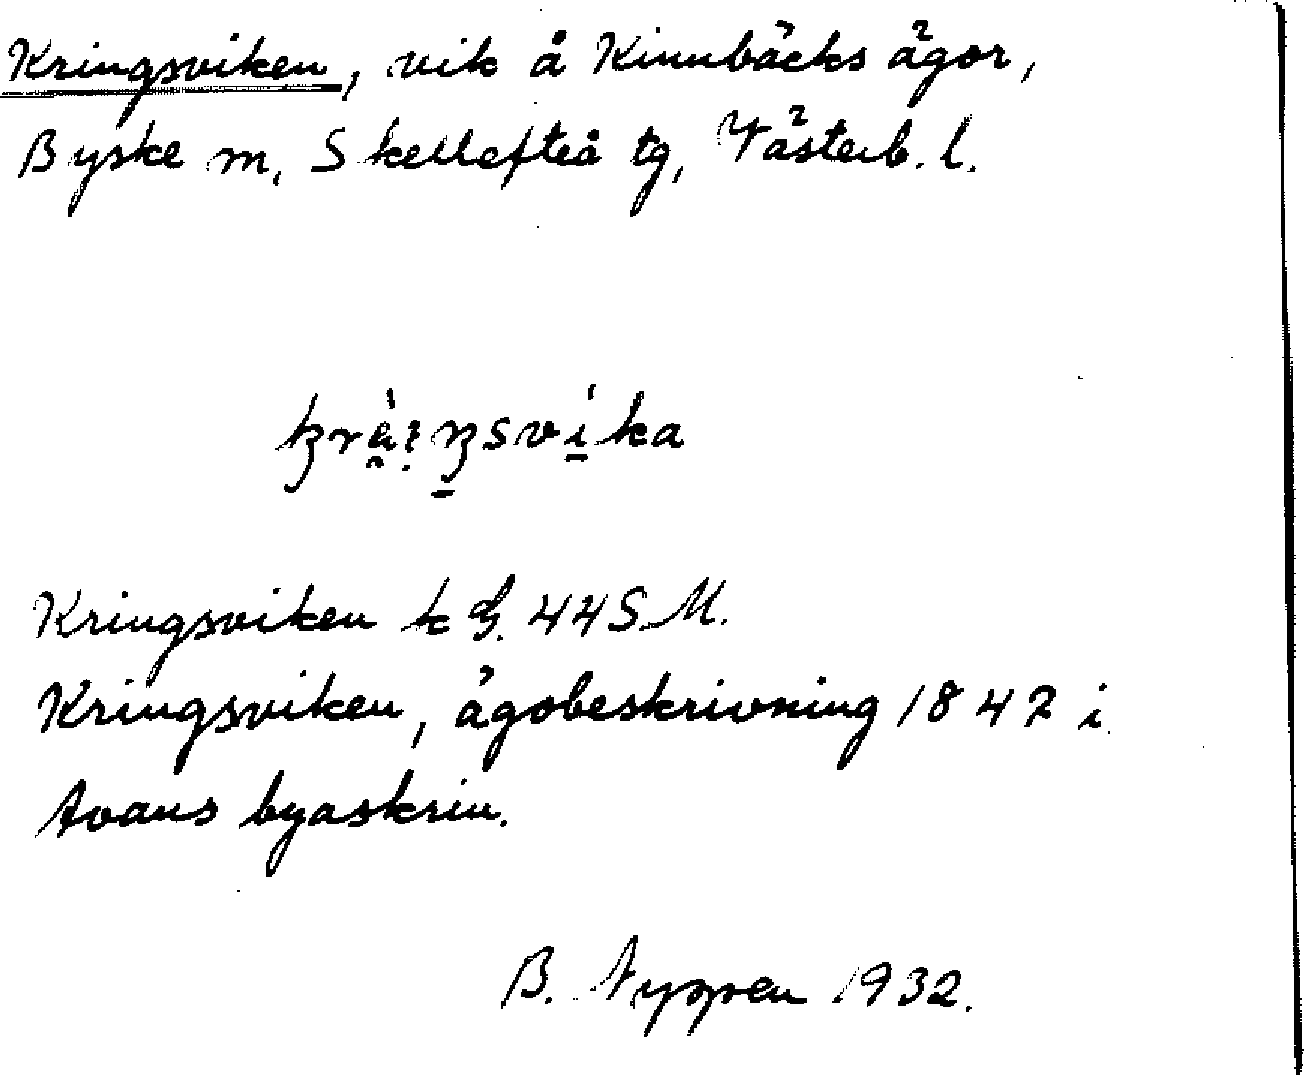 Kringsviken, vik å Kinnbäcks ägor,
Byske sn, Skellefteå tg, Västerb. l.
Kringsviken k G. 44 S.M.
Kringsviken, ägobeskrivning 1842 i
Avans byaskrin.
B. 1932.